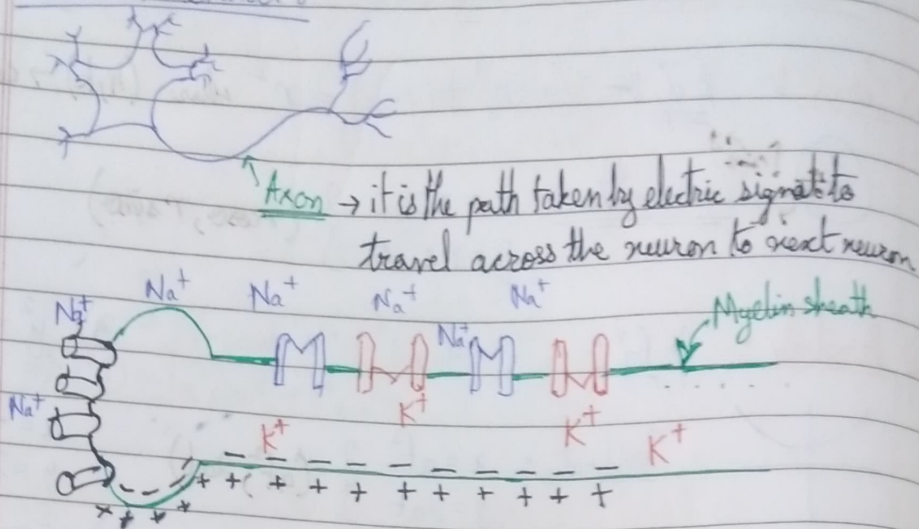 Axon → it is the path taken by electric signal to
travel across the neuron to next neuron
Na+ Na+ Na+ Na+ Na+
Myelin sheath
Na+
Na+
K+
K+ K+ K+
- - - - - - - - - - - -
+ + + + + + + + + +
+ + + +